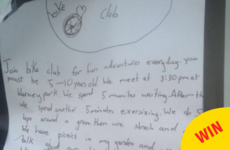 bike club
Join bike club for fun adventures everyday. you
must be 5-10 years old We meet at 3:30pm at
park We spend 5 minutes waiting. Afterwards
we spend another 5 minutes exercising. We do 5
laps around a green then we stretch and
We have picnics in my garden and
talk
WIN